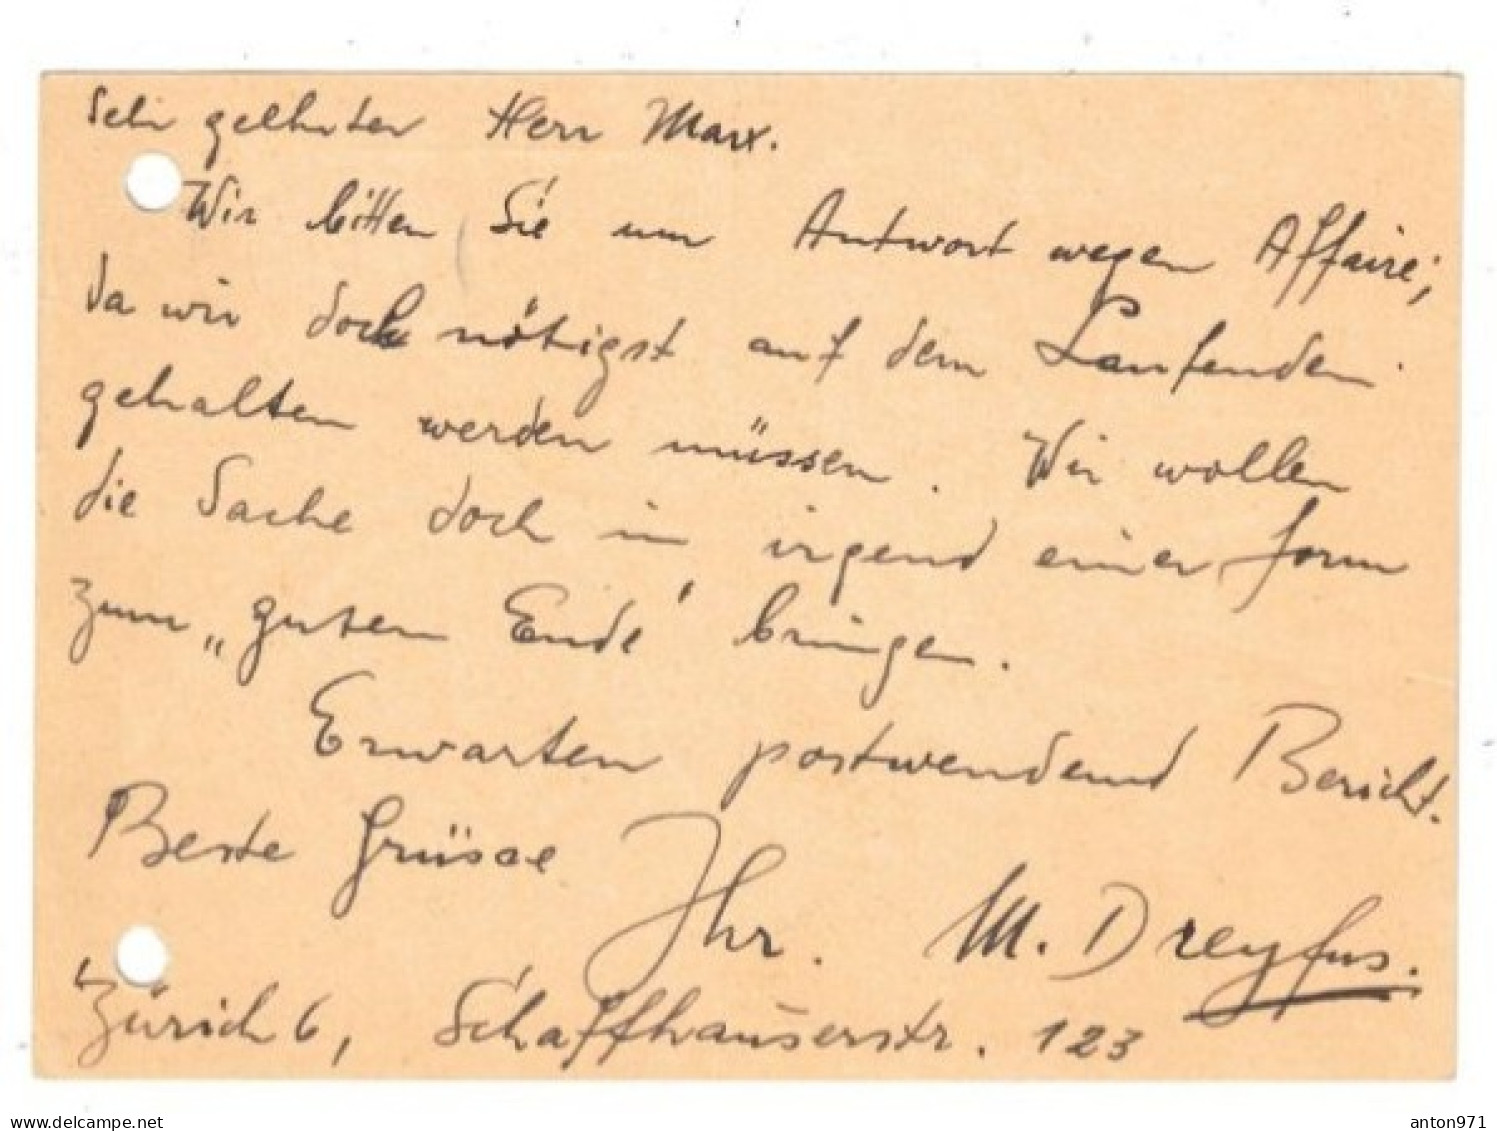 Sehr geehrter Herr Marx.
Wir bitten Sie um Antwort wegen Affaire;
da wir doch nötigst auf dem Laufenden
gehalten werden müssen. Wir wollen
die Sache doch in irgend einer Form
zum „guten Ende" bringen.
Erwarten postwendend Bericht.
Beste Grüsse
Ihr. M. Dreyfus.
Zürich 6, Schaffhauserstr. 123
www.delcampe.net
anton971